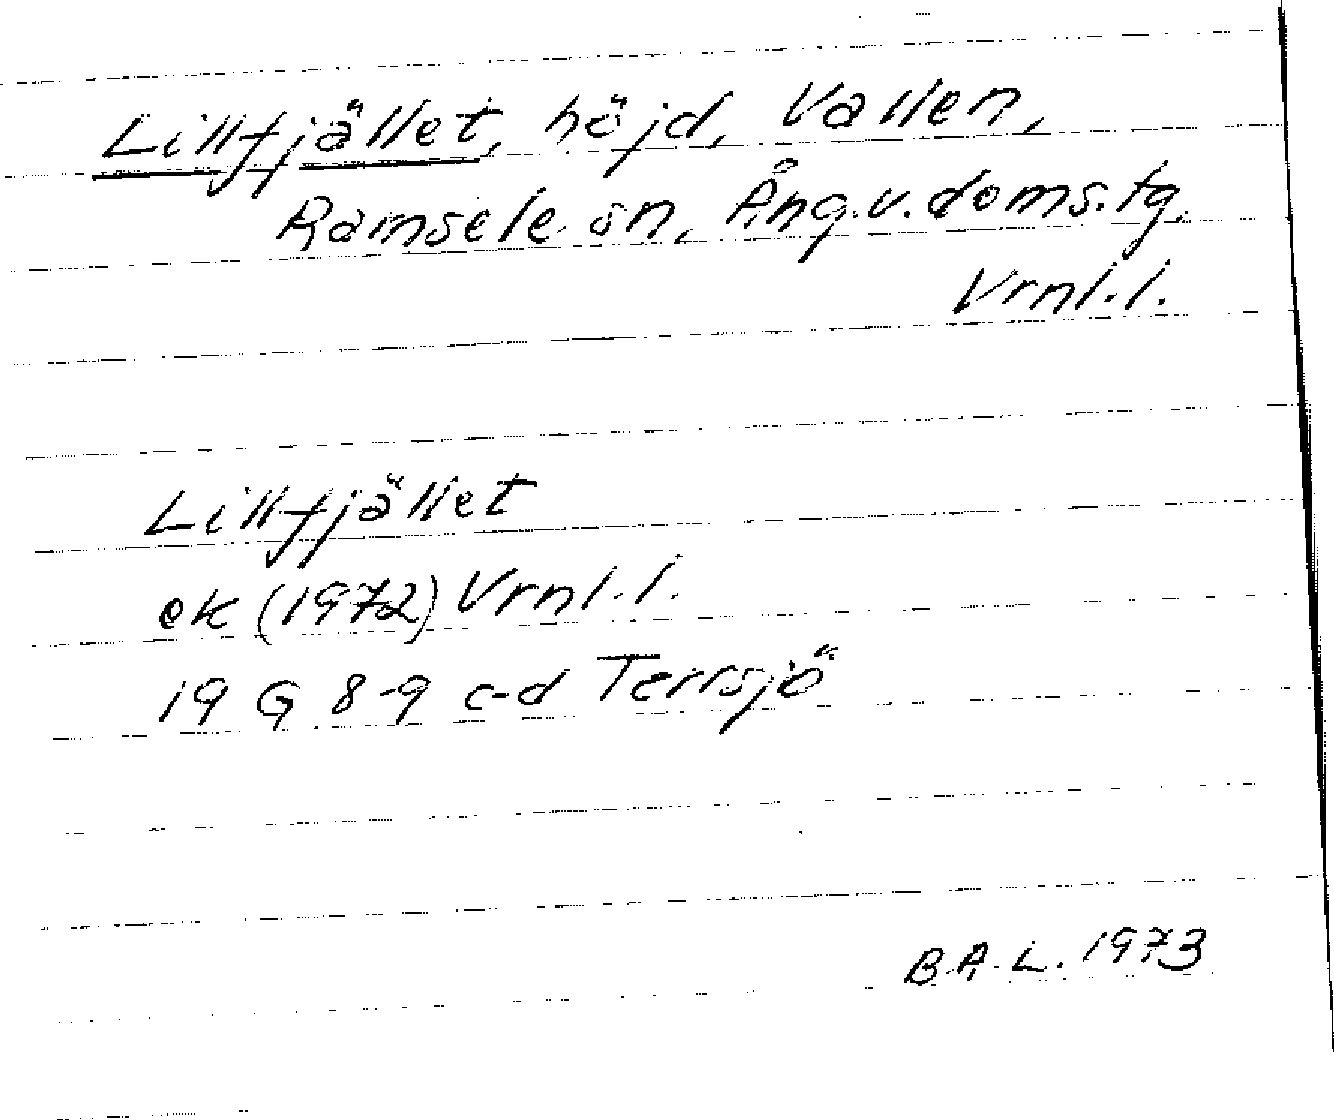 Lillfjället, höjd, Vallen,
Ramsele sn, Ång.v.doms.tg.
Vrnl.l.
Lillfjället
ek (1972) Vrnl.l.
19 G 8-9 c-d Terrsjö
B.A.L. 1973